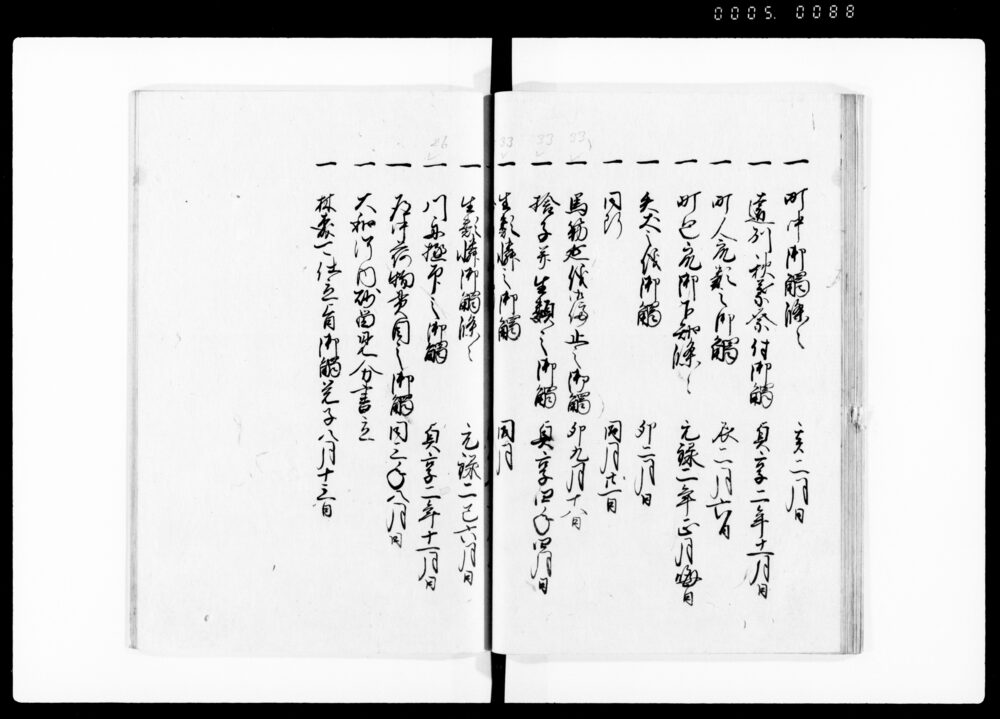 0005. 0088
一 町中御觸條々 亥二月日
一 道列秋葉祭付御觸 貞享二年十一月日
一 町人衣類之御觸 辰二月六日
一 町と衣御下知條々 元禄二年正月晦日
一 之儀御觸 卯二月日
一 同断 同月廿一日
一 馬筋延儀御停止之御觸 卯九月十八日
一 捨子并生類之御觸 貞享四年四月日
一 生類憐之御觸 同月
一 生類憐御觸條々 元禄二巳六月日
一 川舟極印之御觸 貞享二年十一月日
一 荷物貫目之御觸 同三年八月日
一 大和河内砂留見分書立
一 仕立有御觸 子八月十三日
33
33
33
26